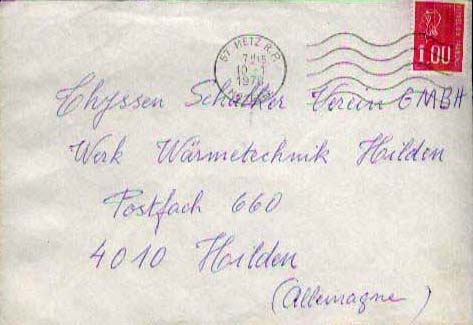 57 METZ R.P.
10 - 1
1978
MOSELLE
1.00
Thyssen Schalker Verein GMBH
Werk Wärmetechnik Hilden
Postfach 660
4010 Hilden
(Allemagne)